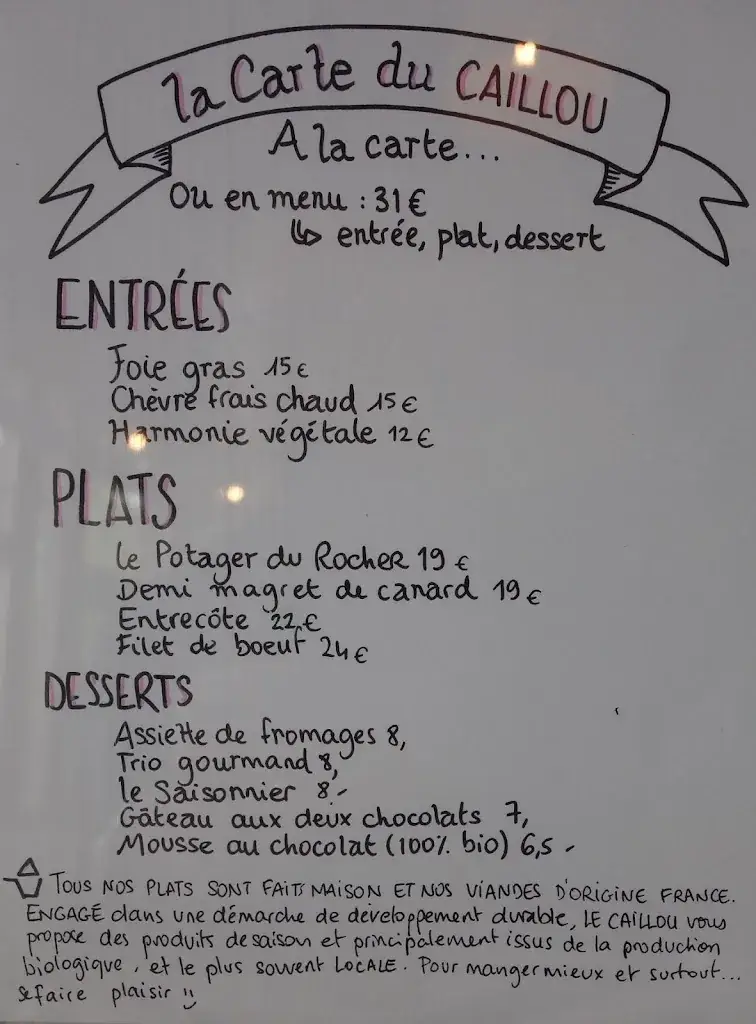 la Carte du CAILLOU
A la carte...
Ou en menu : 31 €
↳ entrée, plat, dessert
ENTRÉES
Foie gras 15 €
Chèvre frais chaud 15 €
Harmonie végétale 12 €
PLATS
Le Potager du Rocher 19 €
Demi magret de canard 19 €
Entrecôte 22 €
Filet de boeuf 24 €
DESSERTS
Assiette de fromages 8,
Trio gourmand 8,
le Saisonnier 8 -
Gâteau aux deux chocolats 7,
Mousse au chocolat (100% bio) 6,5 -
TOUS NOS PLATS SONT FAITS MAISON ET NOS VIANDES D'ORIGINE FRANCE.
ENGAGÉ dans une démarche de développement durable, LE CAILLOU vous
propose des produits de saison et principalement issus de la production
biologique, et le plus souvent LOCALE. Pour manger mieux et surtout...
se faire plaisir